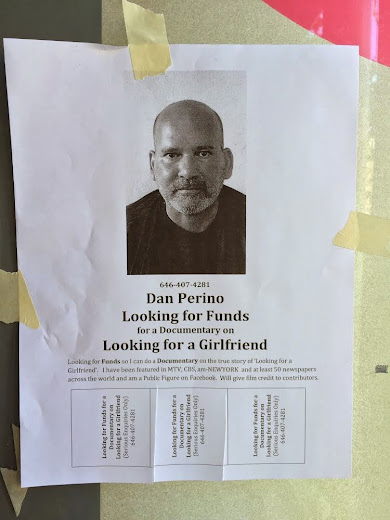 646-407-4281
Dan Perino
Looking for Funds
for a Documentary on
Looking for a Girlfriend
Looking for Funds so I can do a Documentary on the true story of 'Looking for a
Girlfriend'. I have been featured in MTV, CBS, am-NEWYORK and at least 50 newspapers
across the world and am a Public Figure on Facebook. Will give film credit to contributors.
Looking for Funds for a
Documentary on
Looking for a Girlfriend
(Serious Enquiries Only)
646-407-4281
Looking for Funds for a
Documentary on
Looking for a Girlfriend
(Serious Enquiries Only)
646-407-4281
Looking for Funds for a
Documentary on
Looking for a Girlfriend
(Serious Enquiries Only)
646-407-4281